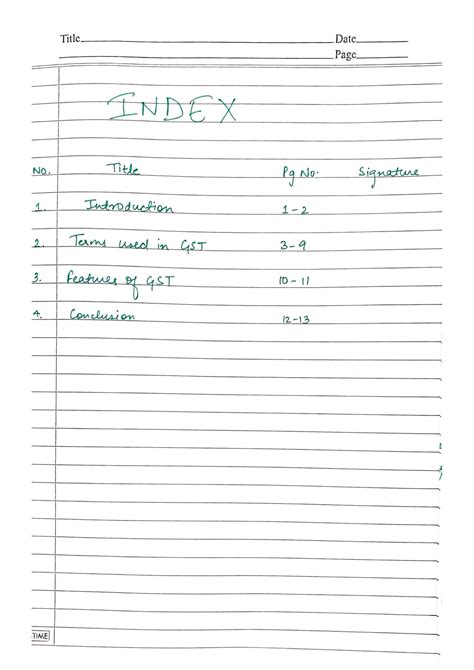 Title Date
Page
INDEX
No. Title Pg No. Signature
1. Introduction 1-2
2. Terms used in GST 3-9
3. Features of GST 10-11
4. Conclusion 12-13
TIME